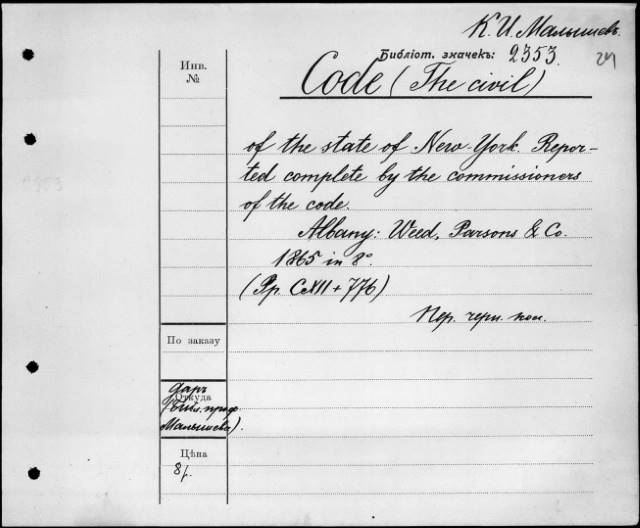 К. И. Малышевъ.
Библіот. значекъ: 2353.
Инв.
№
Code (The civil)
of the state of New-York. Repor-
ted complete by the commissioners
of the code.
Albany: Weed, Parsons & Co.
1865 in 8°.
(Pp. CXII + 776)
Пер. черн. кол.
По заказу
Откуда
даръ
(Библ. проф.
Малышева).
Цѣна
8/.